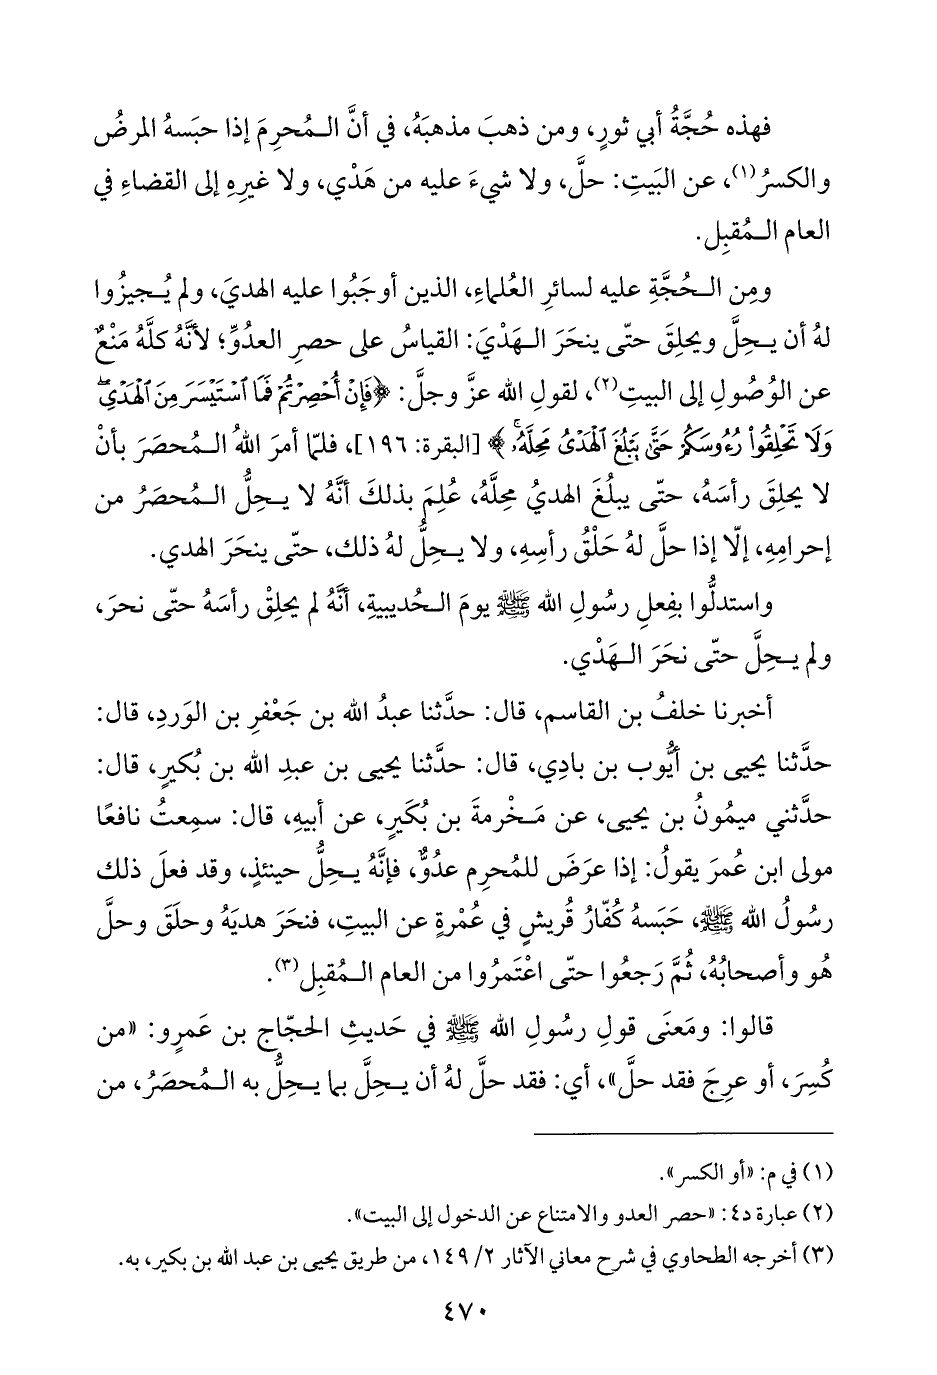 فهذه حُجَّةُ أبي ثورٍ، ومن ذهبَ مذهبَهُ، في أنَّ الـمُحرِمَ إذا حبَسهُ المرضُ
والكسرُ(١)، عن البَيتِ: حلَّ، ولا شيءَ عليه من هَدْيٍ، ولا غيرِهِ إلى القضاءِ في
العام الـمُقبِل.
ومِن الـحُجَّةِ عليه لسائرِ العُلماءِ، الذين أوجَبُوا عليه الهديَ، ولم يُـجيزُوا
لهُ أن يـحِلَّ ويحلِقَ حتّى ينحَرَ الـهَدْيَ: القياسُ على حصرِ العدوِّ؛ لأنَّهُ كلَّهُ مَنْعٌ
عن الوُصُولِ إلى البيتِ(٢)، لقولِ الله عزَّ وجلَّ: ﴿فَإِنْ أُحْصِرْتُمْ فَمَا ٱسْتَيْسَرَ مِنَ ٱلْهَدْيِ ۖ
وَلَا تَحْلِقُوا۟ رُءُوسَكُمْ حَتَّىٰ يَبْلُغَ ٱلْهَدْىُ مَحِلَّهُۥ ۚ﴾ [البقرة: ١٩٦]، فلمّا أمرَ اللهُ الـمُحصَرَ بأنْ
لا يحلِقَ رأسَهُ، حتّى يبلُغَ الهديُ محِلَّهُ، عُلِمَ بذلكَ أنَّهُ لا يـحِلُّ الـمُحصَرُ من
إحرامِهِ، إلّا إذا حلَّ لهُ حَلْقُ رأسِهِ، ولا يـحِلُّ لهُ ذلك، حتّى ينحَرَ الهدي.
واستدلُّوا بفِعلِ رسُولِ الله ﷺ يومَ الـحُديبيةِ، أنَّهُ لم يحلِقْ رأسَهُ حتّى نحرَ،
ولم يـحِلَّ حتّى نحَرَ الـهَدْي.
أخبرنا خلفُ بن القاسم، قال: حدَّثنا عبدُ الله بن جَعْفرِ بن الوَردِ، قال:
حدَّثنا يحيى بن أيُّوب بن بادِي، قال: حدَّثنا يحيى بن عبدِ الله بن بُكيرٍ، قال:
حدَّثني ميمُونُ بن يحيى، عن مَـخْرمةَ بن بُكَيرٍ، عن أبيهِ، قال: سمِعتُ نافعًا
مولى ابن عُمرَ يقولُ: إذا عرَضَ للمُحرِم عدُوٌّ، فإنَّهُ يـحِلُّ حينئذٍ، وقد فعلَ ذلك
رسُولُ الله ﷺ، حَبَسهُ كُفّارُ قُريشٍ في عُمْرةٍ عن البيتِ، فنحَرَ هديَهُ وحلَقَ وحلَّ
هُو وأصحابُهُ، ثُمَّ رَجعُوا حتّى اعْتَمرُوا من العام الـمُقبِل(٣).
قالوا: ومَعنَى قولِ رسُولِ الله ﷺ في حَديثِ الحجّاج بن عَمرٍو: «من
كُسِرَ، أو عرِجَ فقد حلَّ»، أي: فقد حلَّ لهُ أن يـحِلَّ بما يـحِلُّ به الـمُحصَرُ، من
(١) في م: «أو الكسر».
(٢) عبارة د٤: «حصر العدو والامتناع عن الدخول إلى البيت».
(٣) أخرجه الطحاوي في شرح معاني الآثار ٢/ ١٤٩، من طريق يحيى بن عبد الله بن بكير، به.
٤٧٠